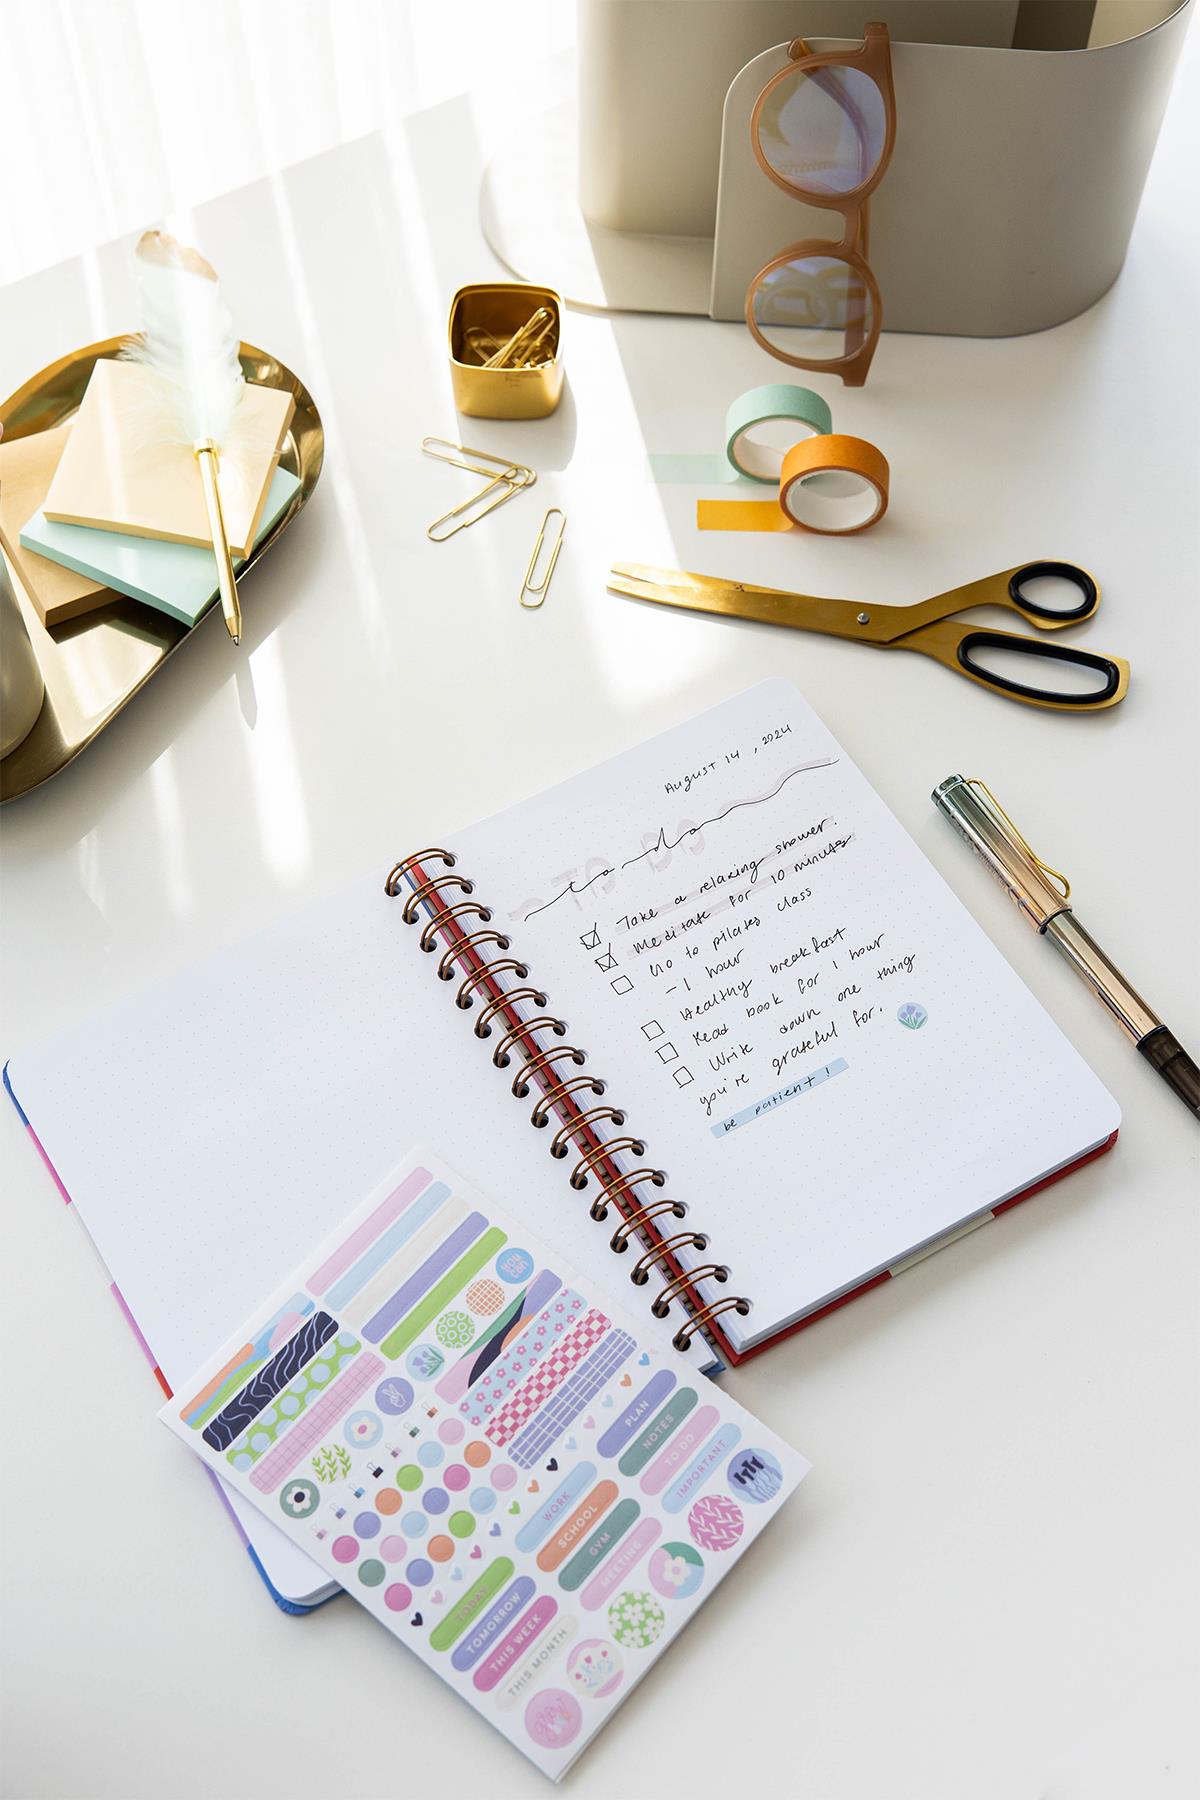 August 14, 2024
to do
TO DO
Take a relaxing shower.
Meditate for 10 minutes
Go to pilates class
- 1 hour
Healthy breakfast
Read book for 1 hour
Write down one thing
you're grateful for.
be patient!
YOU CAN
PLAN
NOTES
TO DO
IMPORTANT
WORK
SCHOOL
GYM
MEETING
TODAY
TOMORROW
THIS WEEK
THIS MONTH